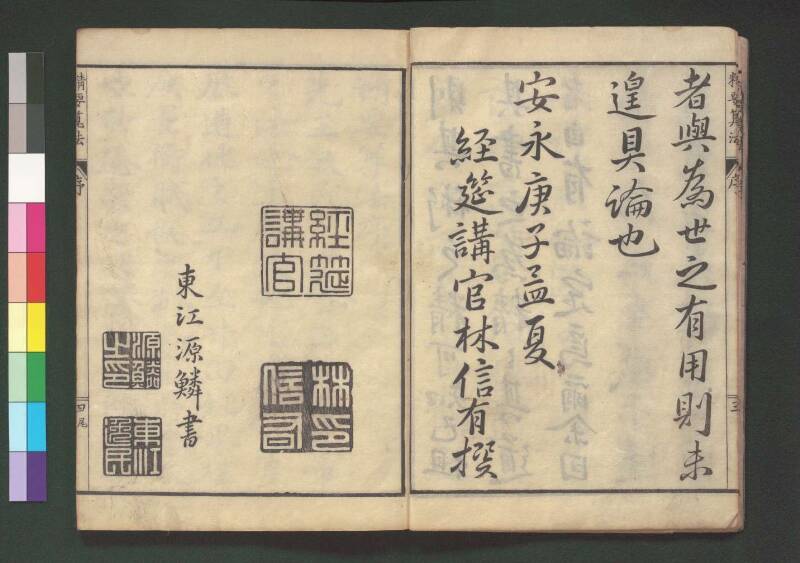 者與為世之有用則未
遑具論也
安永庚子孟夏
経筵講官林信有撰
三
経筵
講官
林印
信有
東江源鱗書
源鱗
之印
東江
逸民
精要算法
序
四尾